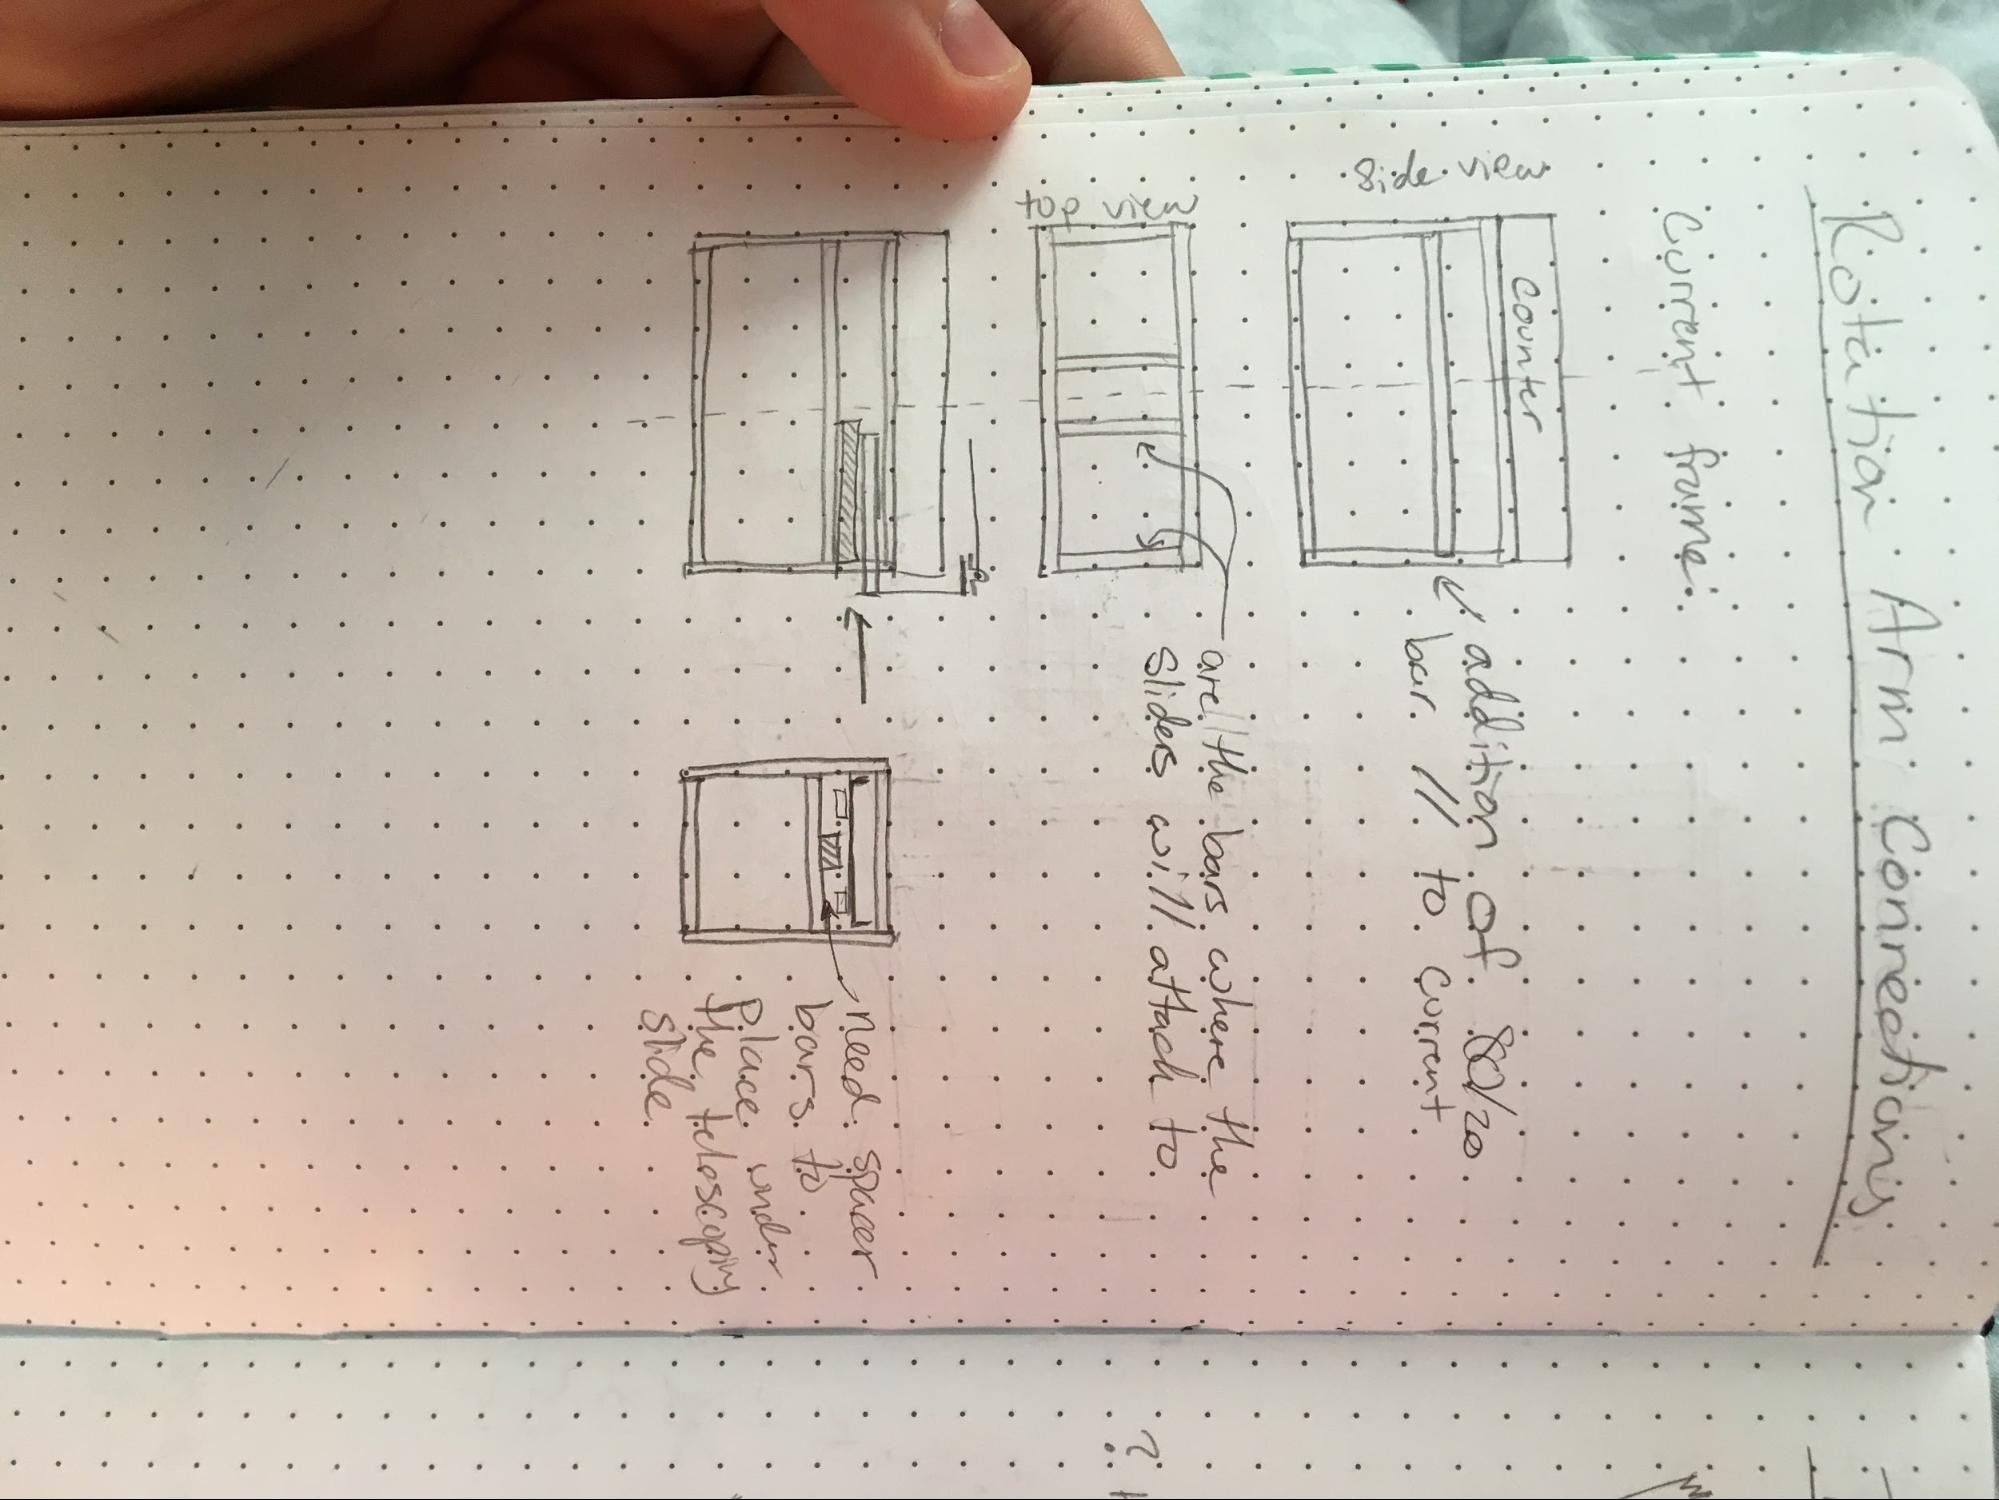 Rotation Arm Connections
Current frame:
side view
counter
addition of 80/20
bar // to current
top view
are the bars where the
sliders will attach to
need spacer
bars to
place under
the telescoping
slide.
?